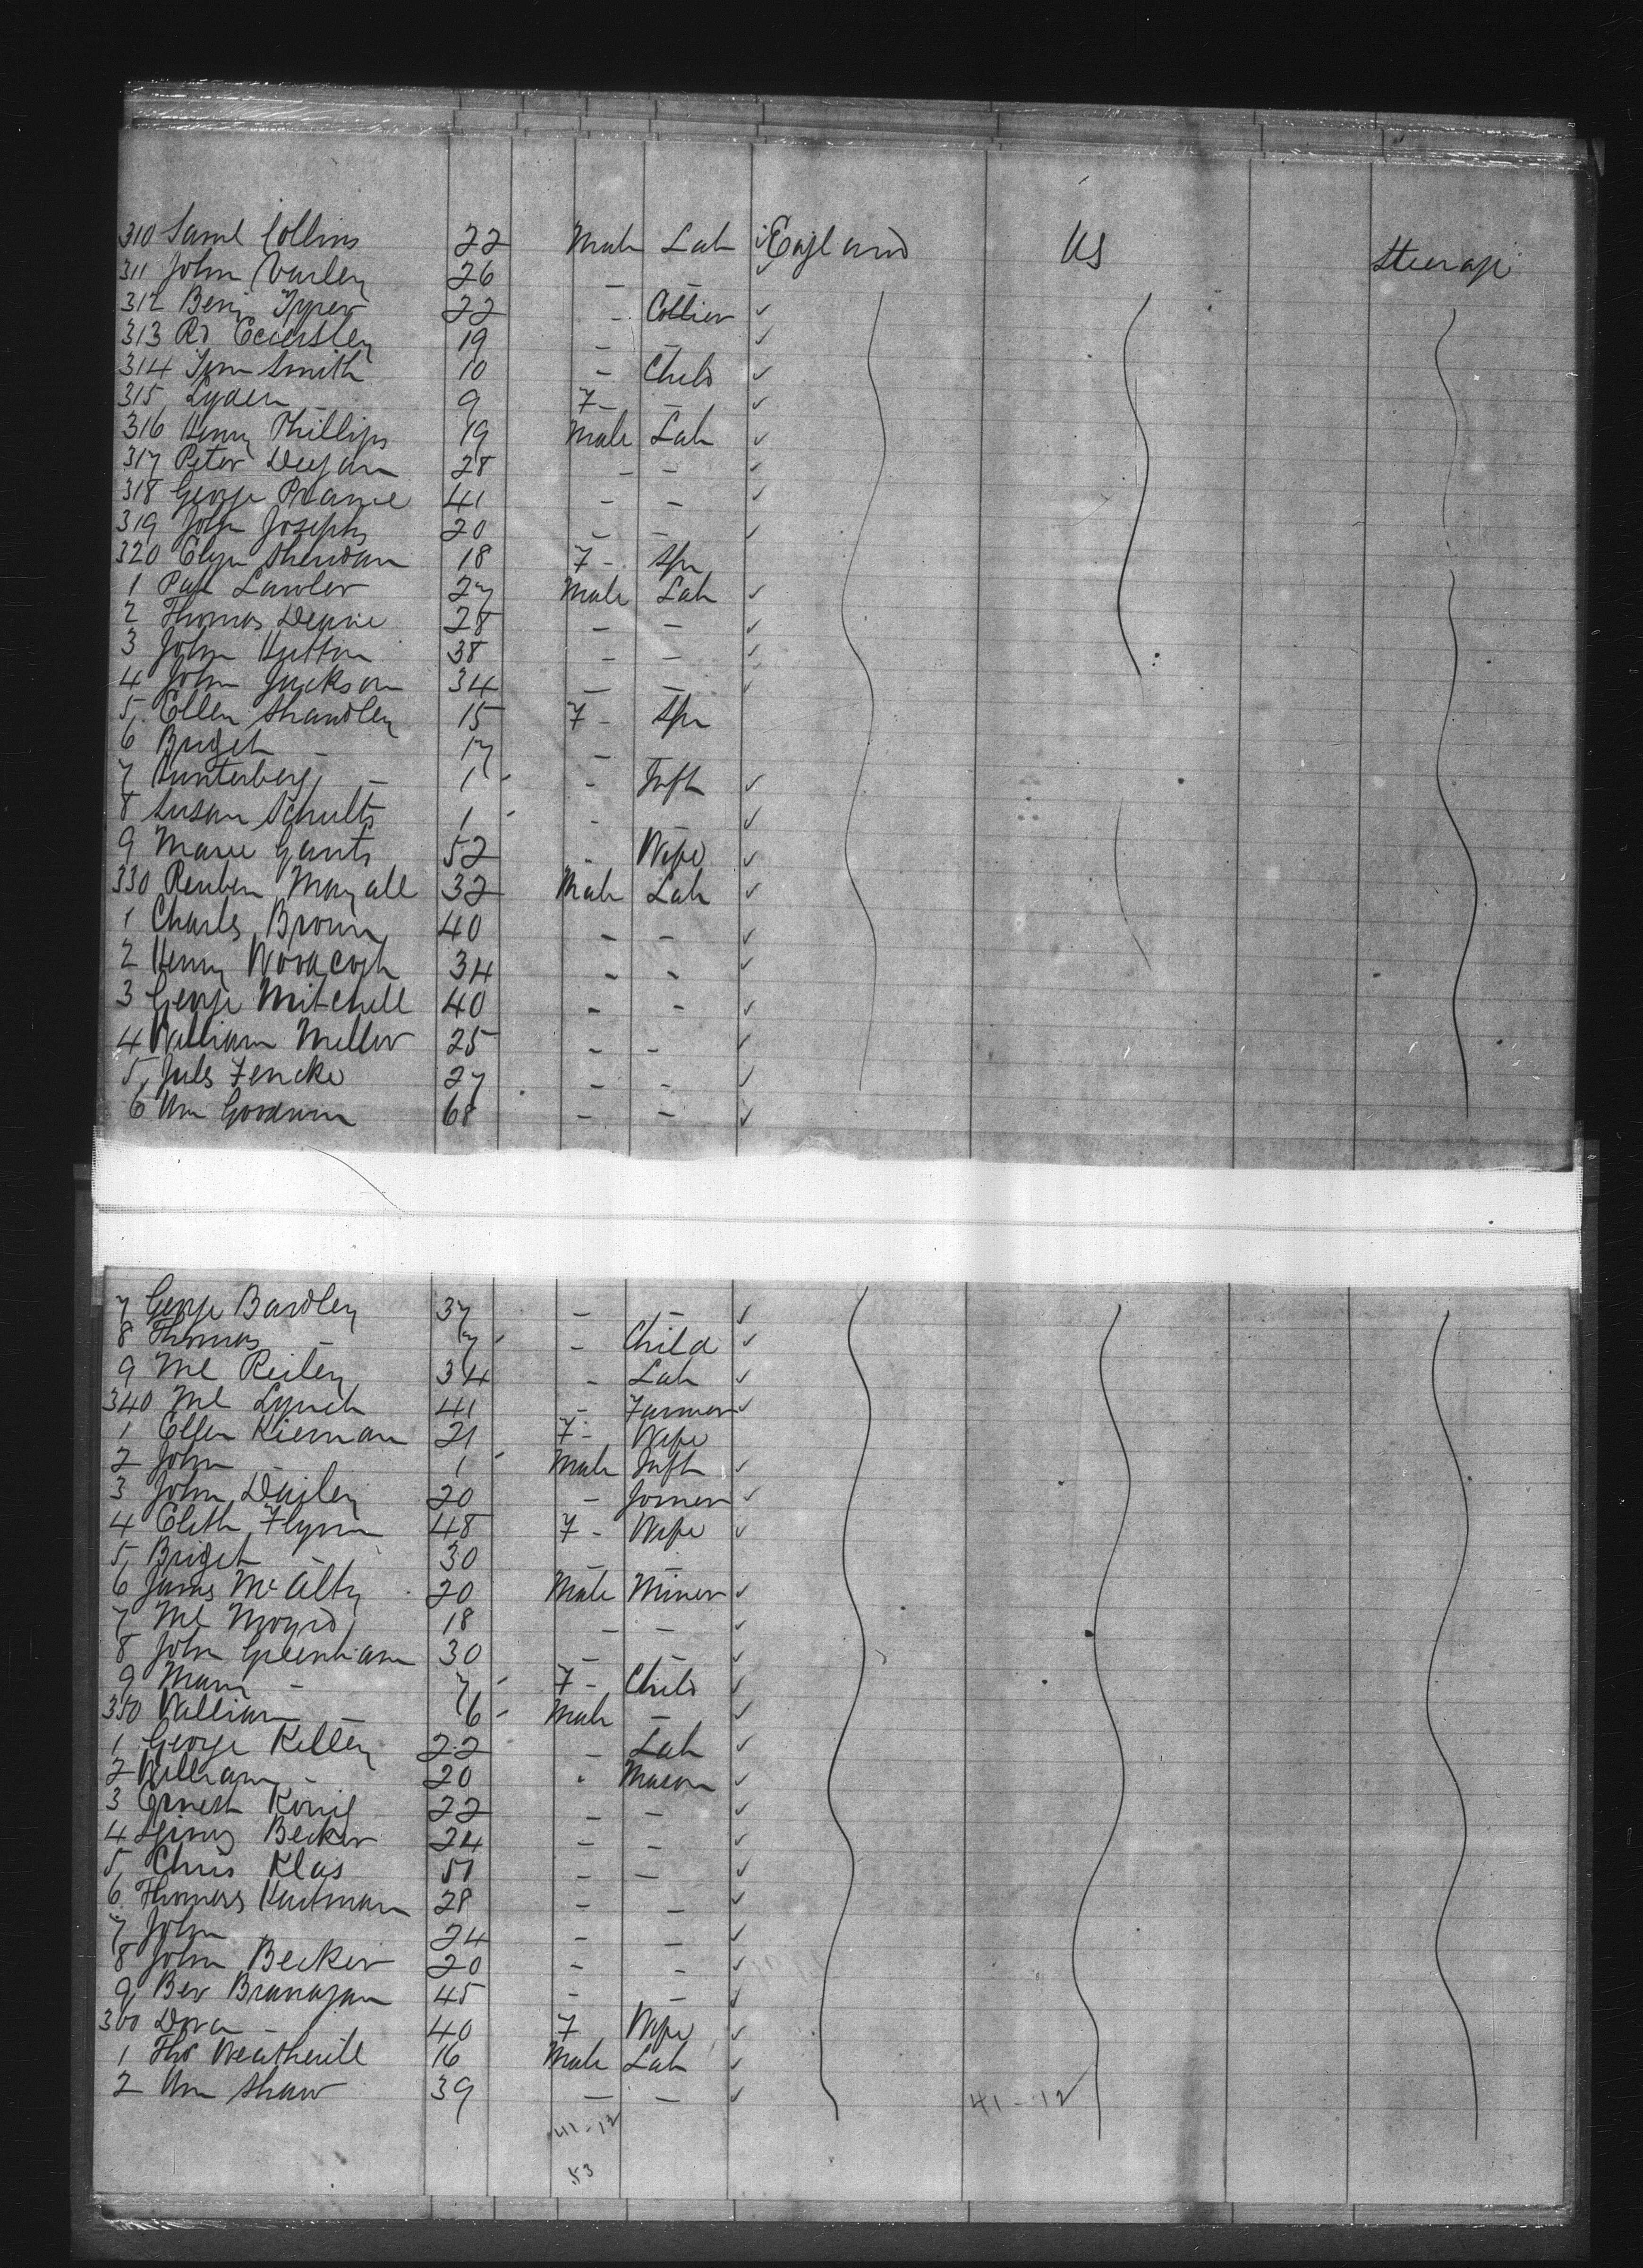 310 Saml Collins 22 Male Lab England US Steerage
311 John Varley 26 — —
312 Benj Tyrer 22 - Collier
313 Rd Eckersley 19 — —
314 Tom Smith 10 - Child
315 Lyden - 9 F - -
316 Henry Phillips 19 Male Lab
317 Peter Deegan 28 - -
318 George Prame 41 - -
319 John Josephs 20 - -
320 Eliza Sheridan 18 F - Spr
1 Pat Lawler 27 Male Lab
2 Thomas Deane 28 - -
3 John Hutton 38 - -
4 John Jackson 34 - -
5 Ellen Shandley 15 F - Spr
6 Bridget - 17 -
7 Gunterberg - 1 - Inft
8 Susan Schults 1 - -
9 Marie Gants 52 - Wife
330 Reuben Mayall 32 Male Lab
1 Charles Brown 40 - -
2 Henry Woodcock 34 - -
3 George Mitchell 40 - -
4 William Mellor 25 - -
5 Jules Fencke 27 - -
6 Wm Goodwin 68 - -
7 George Bardley 37 - -
8 Thomas - 7 - Child
9 Ml Reiley 34 - Lab
340 Ml Lynch 41 - Farmer
1 Ellen Kiernan 21 F - Wife
2 John - 1 Male Inft
3 John Dailey 20 - Joiner
4 Elith Flynn 48 F - Wife
5 Bridget - 30 - -
6 James McAlty 20 Male Miner
7 Ml 18 - -
8 John Greenham 30 - -
9 Mary - 7 F - Child
350 William - 6 Male -
1 George Kelley 22 - Lab
2 William - 20 - Mason
3 Ernest Konig 22 - -
4 Becker 24 - -
5 Chris Klas 51 - -
6 Thomas Hartman 28 - -
7 John - 24 - -
8 John Becker 20 - -
9 Ber Branagan 45 - -
360 Dora - 40 F Wife
1 Thos Weatherill 16 Male Lab
2 Wm Shaw 39 — —
41-12 41-12
53